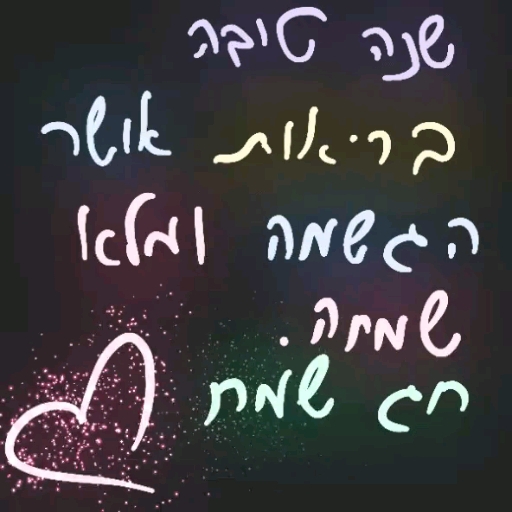 שנה טובה
בריאות אושר
הגשמה ומלא
שמחה.
חג שמח